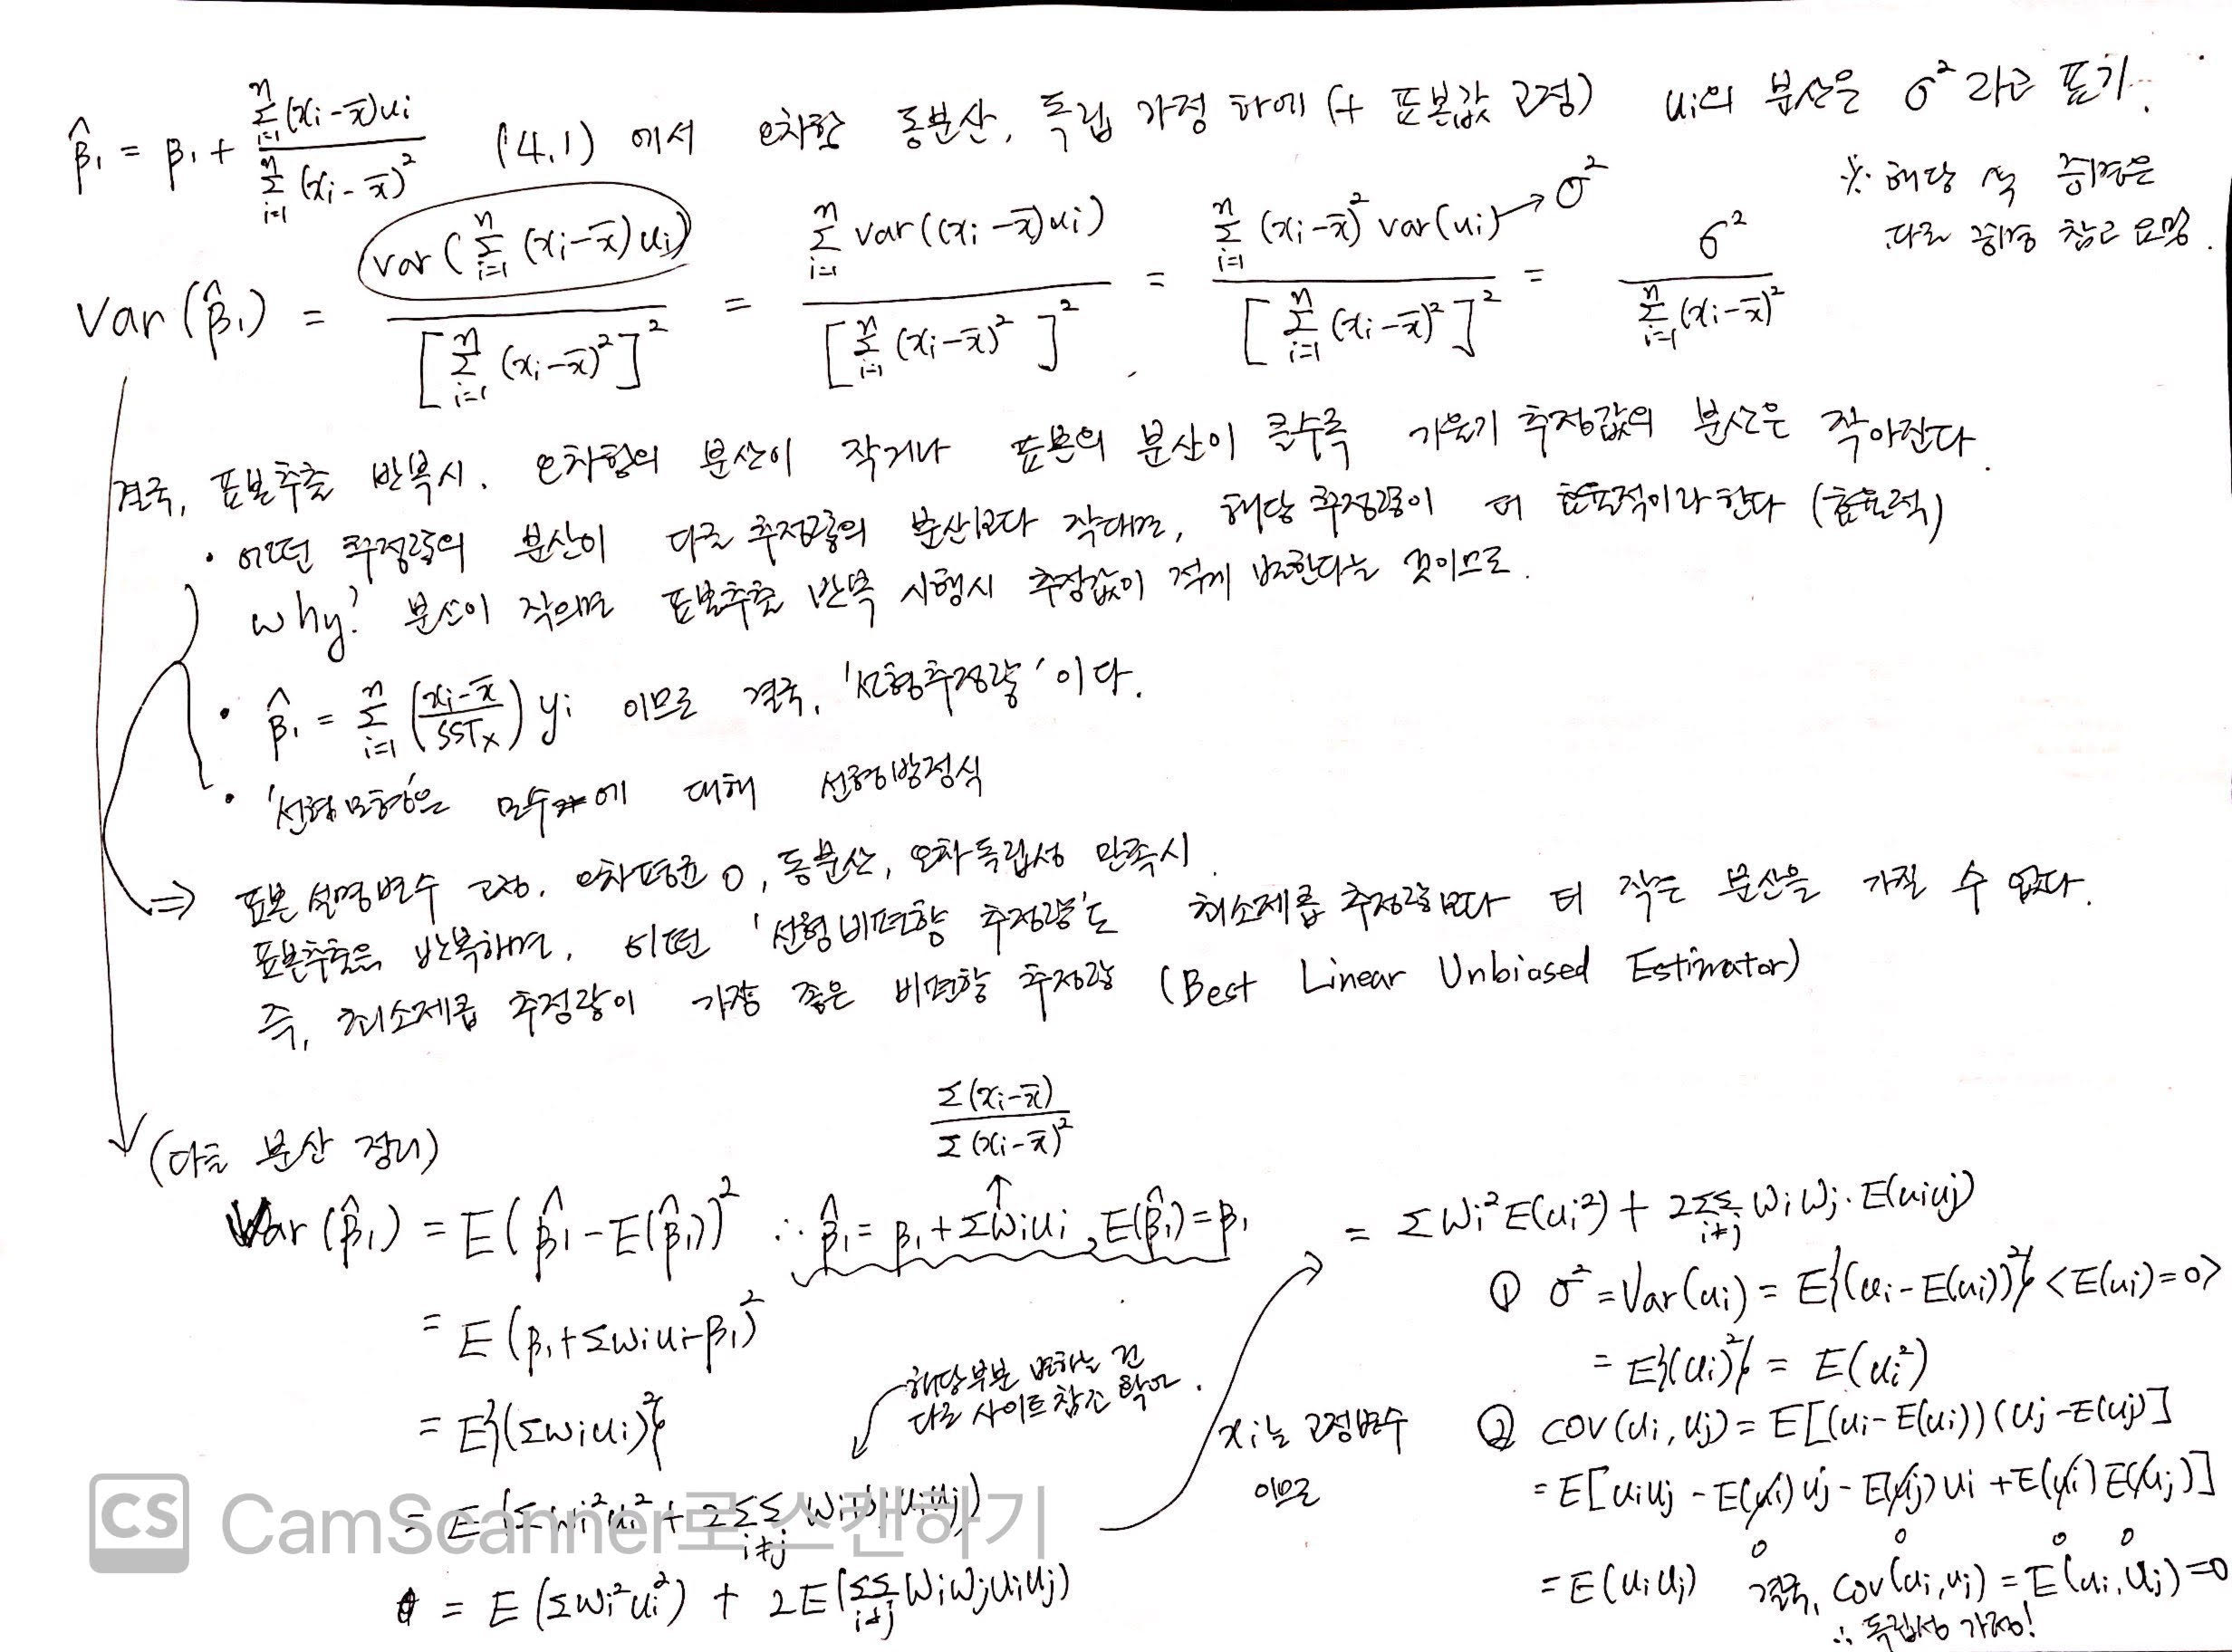 β̂₁ = β₁ + Σⁿᵢ₌₁(xᵢ-x̄)uᵢ / Σⁿᵢ₌₁(xᵢ-x̄)² (4.1) 에서 오차항 동분산, 독립 가정 하에 (+ 표본값 고정) uᵢ의 분산은 σ² 라고 표기.
※ 해당 식 증명은
다른 증명 참고 요망.
Var(β̂₁) = var(Σⁿᵢ₌₁(xᵢ-x̄)uᵢ) / [Σⁿᵢ₌₁(xᵢ-x̄)²]² = Σⁿᵢ₌₁ var((xᵢ-x̄)uᵢ) / [Σⁿᵢ₌₁(xᵢ-x̄)²]² = Σⁿᵢ₌₁(xᵢ-x̄)² var(uᵢ) → σ² / [Σⁿᵢ₌₁(xᵢ-x̄)²]² = σ² / Σⁿᵢ₌₁(xᵢ-x̄)²
결국, 표본추출 반복시. 오차항의 분산이 작거나 표본의 분산이 클수록 기울기 추정값의 분산은 작아진다.
• 어떤 추정량의 분산이 다른 추정량의 분산보다 작다면, 해당 추정량이 더 효율적이라 한다 (효율적)
why? 분산이 작으면 표본추출 반복 시행시 추정값이 적게 변한다는 것이므로.
• β̂₁ = Σⁿᵢ₌₁ ((xᵢ-x̄)/SSTₓ) yᵢ 이므로 결국, '선형추정량'이다.
• '선형모형'은 모수에 대해 선형방정식
⇒ 표본 설명변수 고정. 오차평균 0, 동분산, 오차독립성 만족시.
표본추출을 반복하면, 어떤 '선형비편향 추정량'도 최소제곱 추정량보다 더 작은 분산을 가질 수 없다.
즉, 최소제곱 추정량이 가장 좋은 비편향 추정량 (Best Linear Unbiased Estimator)
Σ(xᵢ-x̄) / Σ(xᵢ-x̄)²
(다른 분산 정리)
Var(β̂₁) = E(β̂₁-E(β̂₁))² ∴ β̂₁ = β₁+Σwᵢuᵢ, E(β̂₁)=β₁
= E(β₁+Σwᵢuᵢ-β₁)²
= E{(Σwᵢuᵢ)²}
해당부분 변하는 건
다른 사이트 참조
= E(Σwᵢ²uᵢ² + 2ΣΣ i≠j wᵢwⱼuᵢuⱼ)
= E(Σwᵢ²uᵢ²) + 2E(ΣΣ i≠j wᵢwⱼuᵢuⱼ)
xᵢ는 고정변수
이므로
= Σwᵢ²E(uᵢ²) + 2ΣΣ i≠j wᵢwⱼ·E(uᵢuⱼ)
① σ² = Var(uᵢ) = E{(uᵢ-E(uᵢ))²} <E(uᵢ)=0>
= E{(uᵢ)²} = E(uᵢ²)
② cov(uᵢ, uⱼ) = E[(uᵢ-E(uᵢ))(uⱼ-E(uⱼ)]
= E[uᵢuⱼ - E(uᵢ)uⱼ - E(uⱼ)uᵢ + E(uᵢ)E(uⱼ)]
0 0 0 0
= E(uᵢuⱼ) 결국, cov(uᵢ,uⱼ) = E(uᵢ,uⱼ)=0
∴ 독립성 가정!
CS CamScanner로 스캔하기